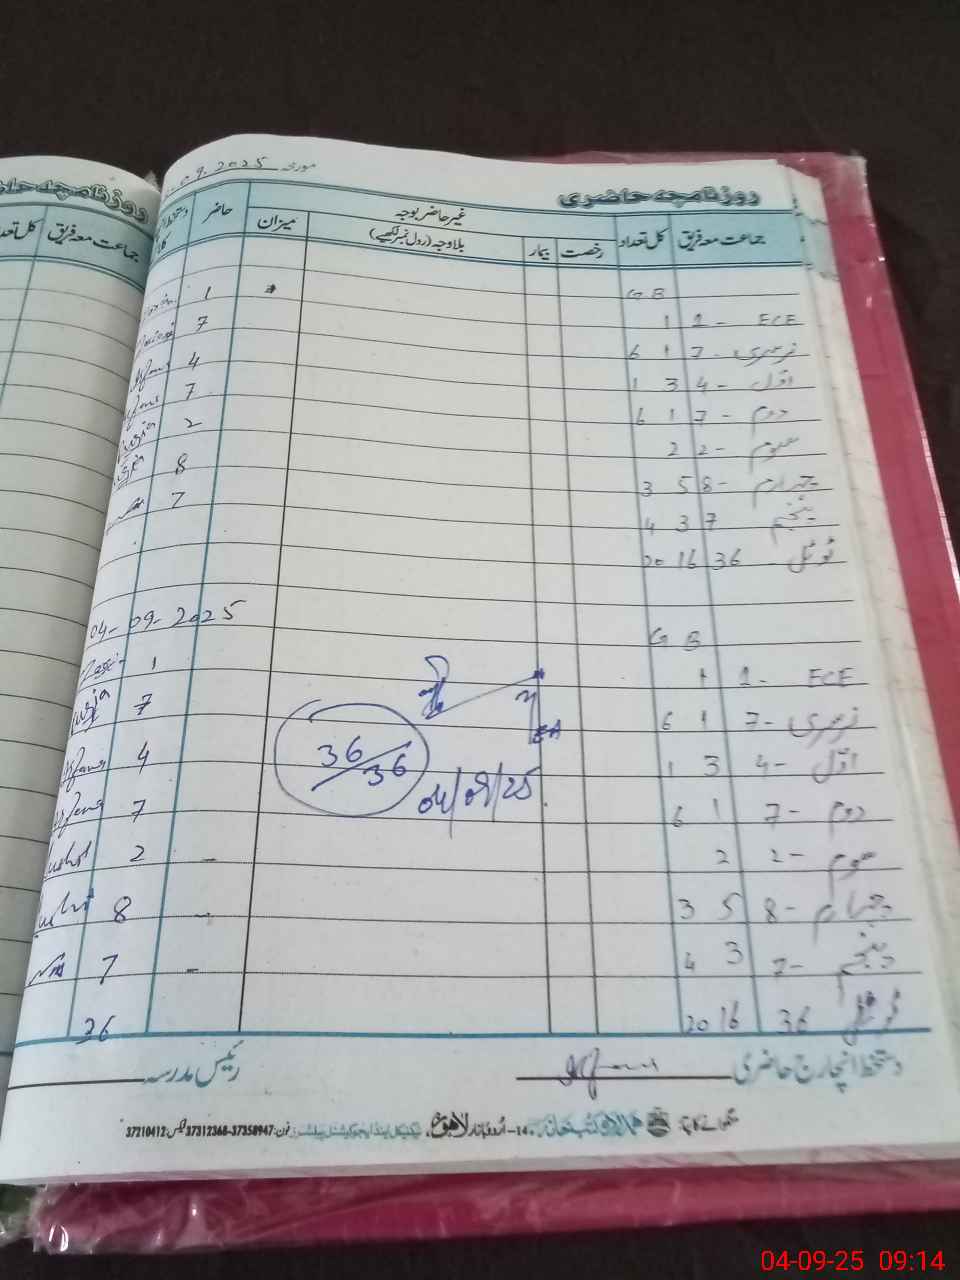 روزنامچہ حاضری
مورخہ .09.2025
جماعت معہ فریق کل تعداد غیر حاضر بوجہ میزان حاضر دستخط
رخصت بیمار بلاوجہ (رول نمبر لکھیے)
G B
ECE - 1 1 1
نرسری - 7 1 6 7
اوّل - 4 3 1 4
دوم - 7 1 6 7
سوم - 2 2 2
چہارم - 8 5 3 8
پنجم 7 3 4 7
ٹوٹل - 36 16 20
04-09-2025
G B
ECE - 1 1 1
نرسری - 7 1 6 7
اوّل - 4 3 1 4
دوم - 7 1 6 7
سوم - 2 2 - 2
چہارم - 8 5 3 - 8
پنجم - 7 3 4 - 7
ٹوٹل 36 16 20 36
36/36
04/09/25
دستخط انچارج حاضری رئیس مدرسہ
منگوانے کا پتہ: ہمالاؤ کتب خانہ، 14-اُردو بازار لاہور، فون: 37358947-37312368 فیکس: 37210412
روزنامچہ حا
جماعت معہ فریق کل تعدا
04-09-25 09:14